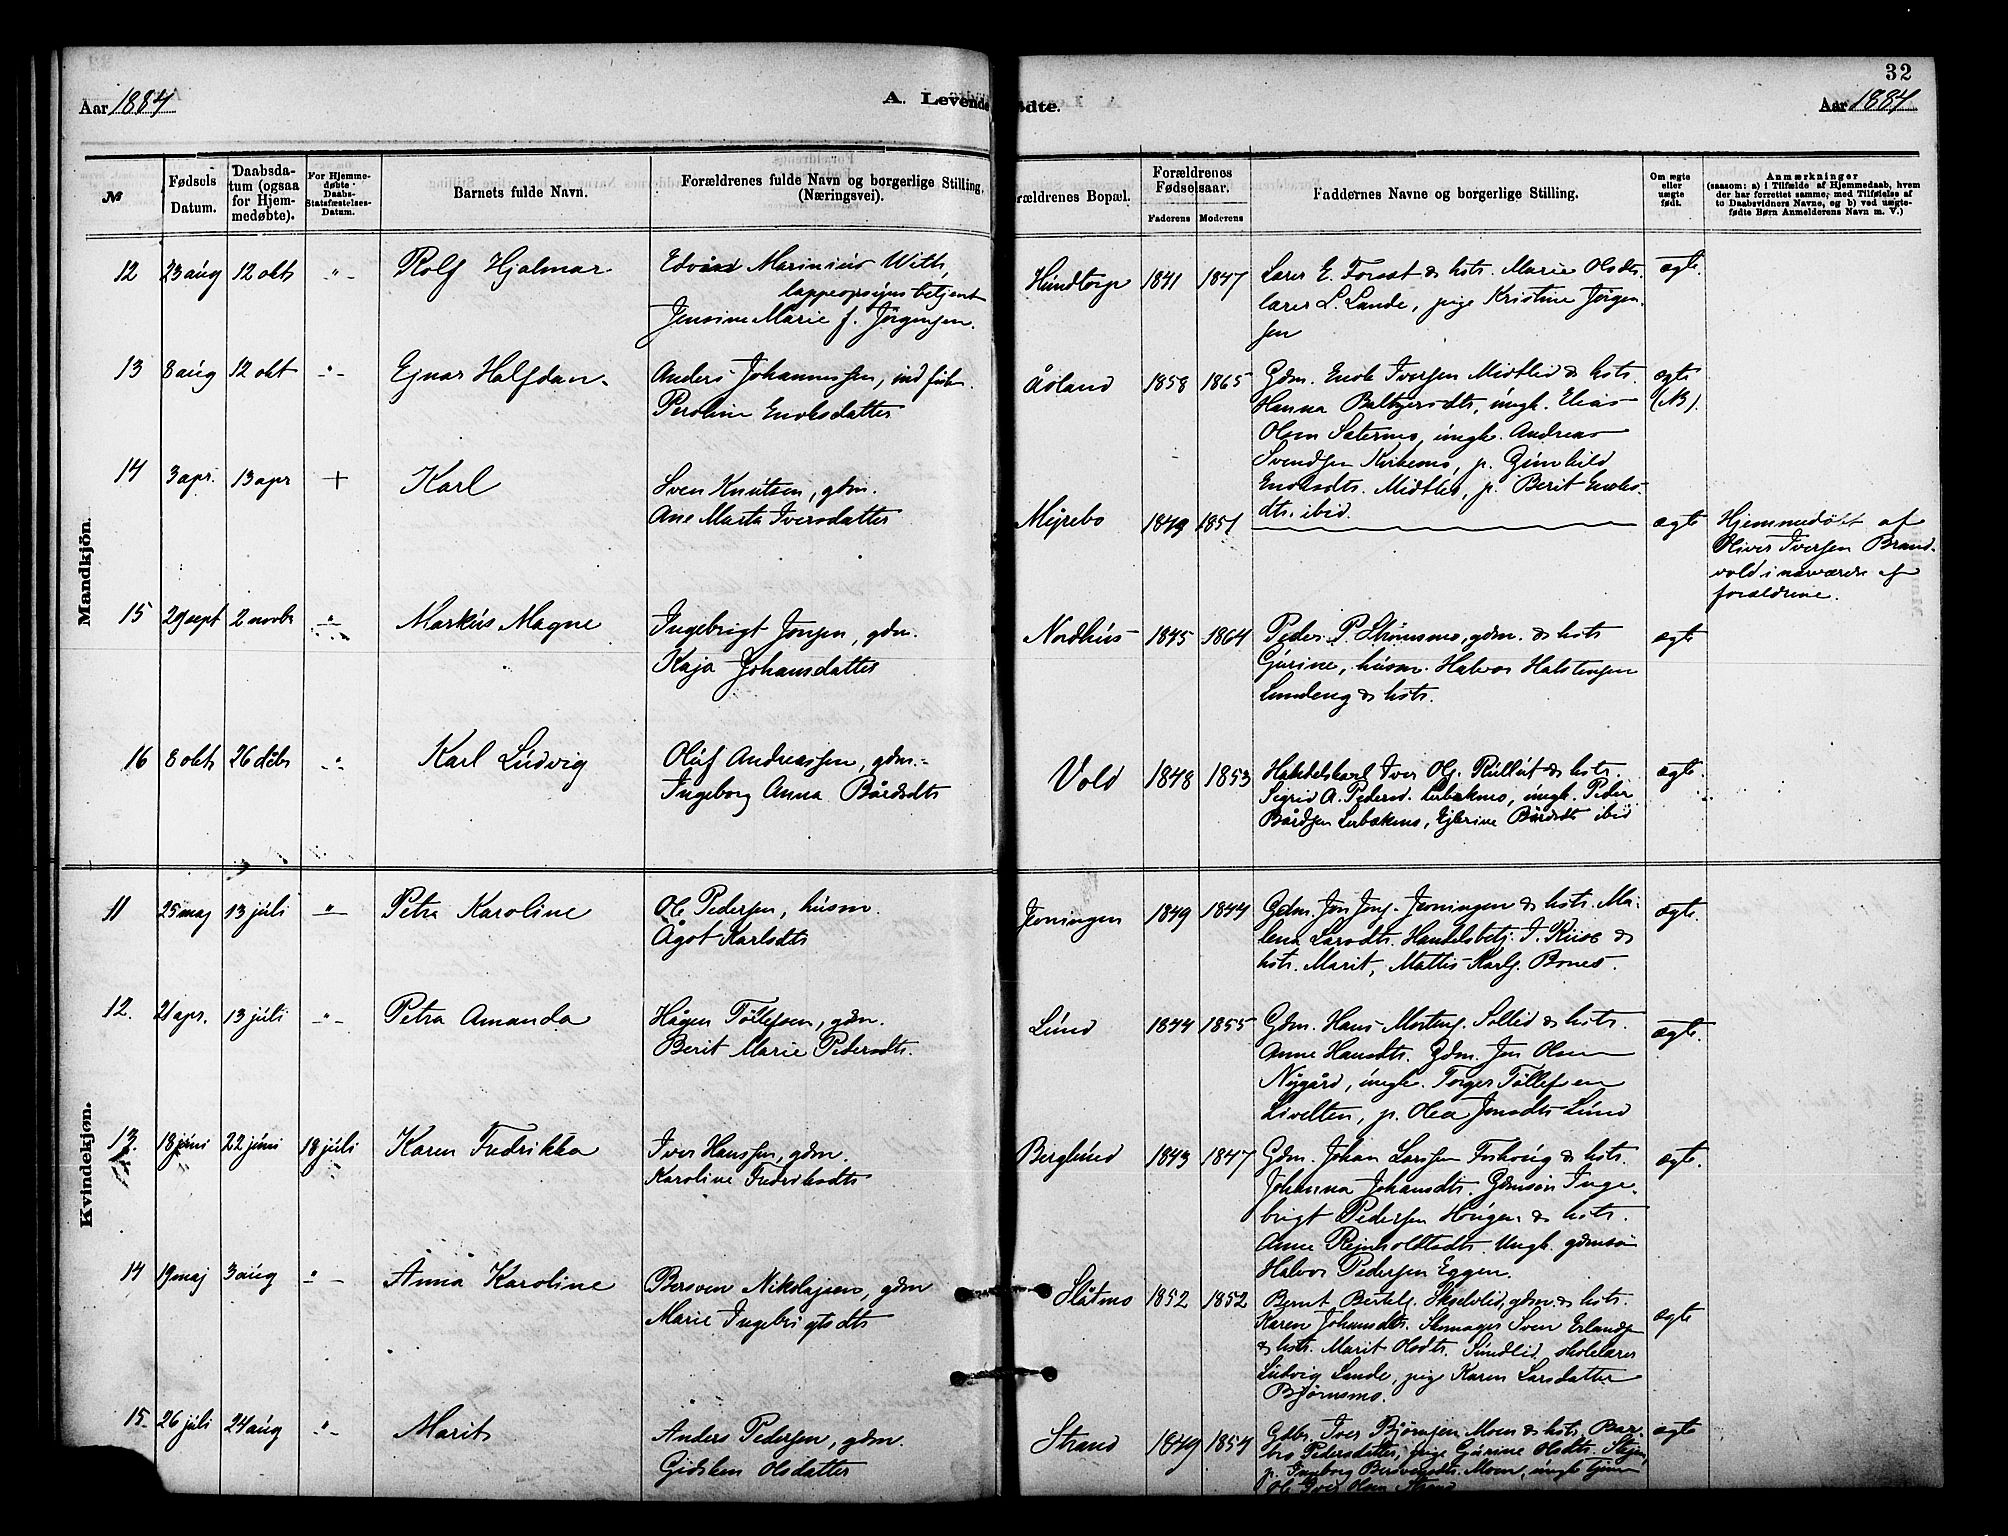 32
Aar 1884
A. Levende
ødte.
Aar 1884
№
Fødsels Datum.
Daabsda-
tum (ogsaa
for Hjem-
medøbte).
For Hjemme-
døbte
Daabs-
Statsfæstelses-
Datum.
Barnets fulde Navn.
Forældrenes fulde Navn og borgerlige Stilling,
(Næringsvei).
rældrenes Bopæl.
Forældrenes
Fødselsaar.
Faderens
Moderens
Faddernes Navne og borgerlige Stilling.
Om ægte
eller
uægte
født.
Anmærkninger
(saasom: a) i Tilfælde af Hjemmedaab, hvem
der har forrettet samme, med Tilføielse af
to Daabsvidners Navne, og b) ved uægte-
fødte Børn Anmelderens Navn m. V.)
Mandkjön.
12 23 aug 12 okt " Rolf Hjalmar
Edvard Marinius With,
lappeopsynsbetjent
Jensine Marie f. Jörgensen.
Hundtorp 1841 1847
Lærer E. Forsat & hstr. Marie Olsdtr.
lærer L. Lande, pige Kristine Jörgen-
sen
ægte
13 8 aug 12 okt " Ejnar Halfdan.
Anders Johannessen, inds
Peroline Enoksdatter
Åsland 1858 1865
Gdm. Enok Iversen Midtlid & hstr.
Hanna Baltzersdtr, ungk. Elias
Olsen Sætermo, ungk. Andreas
Svendsen Kirkemo, p. Gunhild
Enoksdtr. Midtlid, p. Berit Enoks-
dtr. ibid.
ægte
(NB).
14 3 apr. 13 apr + Karl
Sven Knutsen, gdm.
Ane Marta Iversdatter
Myrebo 1849 1851
ægte
Hjemmedöbt af
Oliver Iversen Brand-
vold i nærværelse af
forældrene.
15 29 sept 2 novbr " Markus Magne
Ingebrigt Jonsen, gdm.
Kaja Johansdatter
Nordhus 1845 1864
Peder P. Strömsmo, gdm. & hstr
Gurine, husm. Halvor Halstensen
Lundeng & hstr.
ægte
16 8 okt 26 dcbr " Karl Ludvig
Oluf Andreassen, gdm.
Ingeborg Anna Bårdsdtr
Vold 1848 1853
Handelskarl Iver Ols. Rullut & hstr.
Sigrid A. Pedersd. Lerbækmo, ungk. Peder
Bårdsen Lerbækmo, Ejlerine Bårdsdt ibid
ægte
Kvindekjøn.
11 25 maj 13 juli " Petra Karoline
Ole Pedersen, husm.
Ågot Karlsdtr
Jenningen 1849 1844
Gdm. Jon Jons. Jenningen & hstr. Ma-
lena Larsdtr. Handelsbetj. I. Kiise &
hstr. Marit, Mattis Karls. Bones.
ægte.
12. 21 apr. 13 juli " Petra Amanda
Hågen Tollefsen, gdm.
Berit Marie Pedersdtr.
Lund 1844 1855
Gdm. Hans Mortens. Sollid & hstr.
Anne Hansdtr. Gdm. Jon Olsen
Nygård, ungk. Torger Tollefsen
Livelten, p. Olea Jonsdtr Lund
ægte.
13. 18 juni 22 juni 18 juli Karen Fredrikka
Iver Hanssen, gdm.
Karoline Fredriksdtr
Berglund 1843 1847
Gdm. Johan Larssen Foshoug & hstr.
Johanna Johansdtr. Gdmsön Inge-
brigt Pedersen Hougen & hstr.
Anne Rejnholdtsdtr. Ungk. gdmsö
Halvor Pedersen Eggen.
ægte.
14 19 maj 3 aug " Anna Karoline
Bersven Nikolajsen, gdm
Marie Ingebrigtsdtr
Slåtmo 1852 1852
Bernt Bertels. Skedelid, gdm. & hstr.
Karen Johansdtr. Skomager Sven Erlands
& hstr. Marit Olsdtr. Sundlid, skolelærer
Ludvig Lande, pige Karen Larsdatter
Bjørnsmo.
ægte
15. 26 juli 24 aug " Marit
Anders Pedersen, gdm.
Gidsken Olsdatter
Strand 1849 1854
Gdbr. Iver Bjørnsen Moen & hstr. Bar-
bro Pedersdatter, pige Gurine Olsdtr.
p. Ingeborg Bersvensdtr. Moen, ungk
Ol. Iver Olsen Strand
ægte